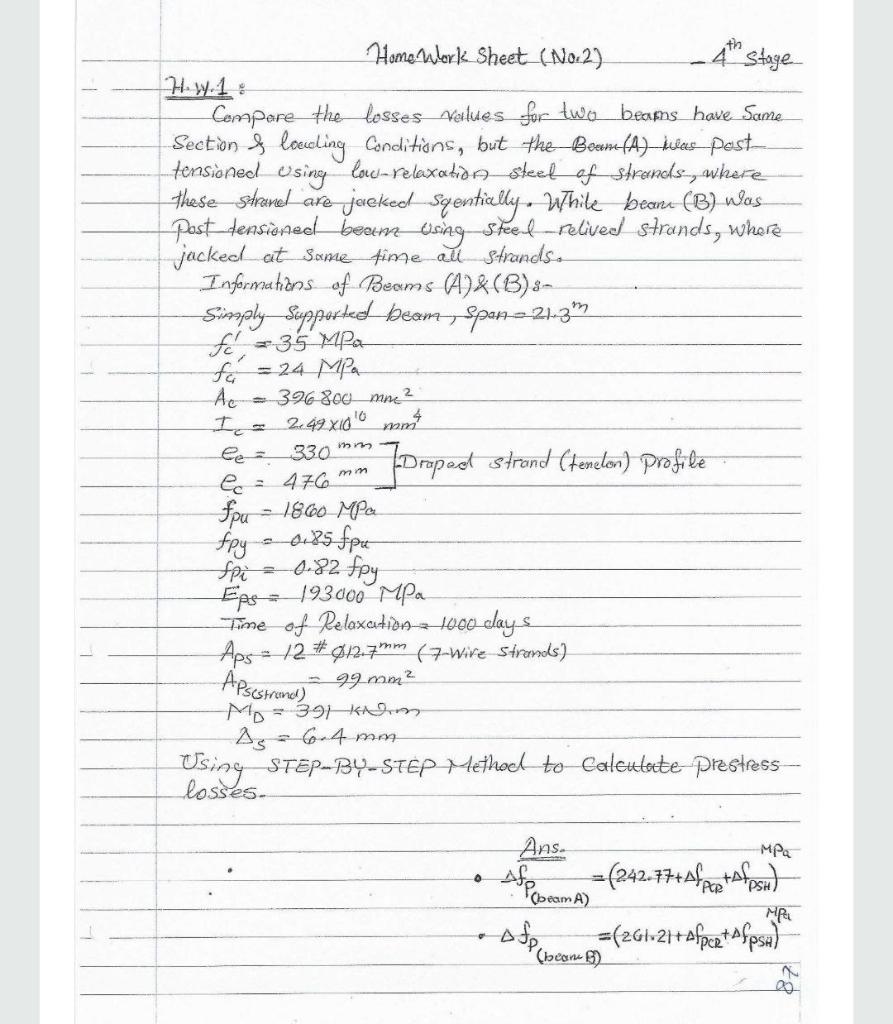 HomeWork Sheet (No.2) - 4th Stage
H.W.1 :
Compare the losses values for two beams have Same
Section & loading Conditions, but the Beam(A) was post
tensioned using low-relaxation steel of strands, where
these strand are jacked sqentially. While beam (B) was
Post tensioned beam using steel-relived strands, where
jacked at same time all strands.
Informations of Beams (A)&(B):-
Simply Supported beam, span = 21.3m
fc' = 35 MPa
fci' = 24 MPa
Ac = 396800 mm2
Ic = 2.49x10^10 mm4
ee = 330 mm
Draped strand (tendon) profile
ec = 476 mm
fpu = 1860 MPa
fpy = 0.85 fpu
fpi = 0.82 fpy
Eps = 193000 MPa
Time of Relaxation = 1000 days
Aps = 12 # Ø12.7mm (7-wire strands)
Aps(strand) = 99 mm2
MD = 391 kN.m
Δs = 6.4 mm
Using STEP-BY-STEP Method to Calculate prestress
losses.
Ans.
• Δfp(beam A) = (242.77+ΔfpCR+ΔfpSH) MPa
• Δfp(beam B) = (261.21+ΔfpCR+ΔfpSH) MPa